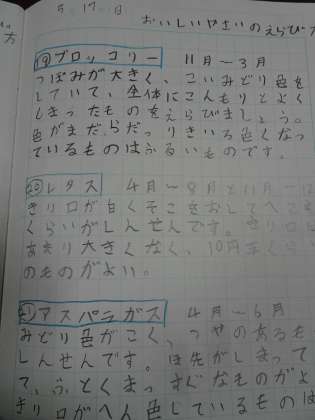 5.17.日
おいしいやさいのえらび方
方
⑲ブロッコリー 11月〜3月
つぼみが大きく、こいみどり色を
していて、全体にこんもりとよく
しまったものをえらびましょう。
色がまだらだったりきいろ色くなっ
ているものはふるいものです。
⑳レタス 4月〜8月と11月〜
きり口が白くそこをおしてへこ
くらいがしんせんです。きり口
あまり大きくなく、10円玉くらい
のものがよい。
㉑アスパラガス 4月〜6月
みどり色がこく、つやのあるも
しんせんです。ほ先がしまって
て、ふとくまっすぐなものがよ
きり口がへん色しているものは